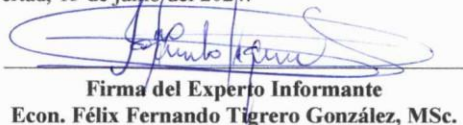 Firma del Experto Informante
Econ. Félix Fernando Tigrero González, MSc.